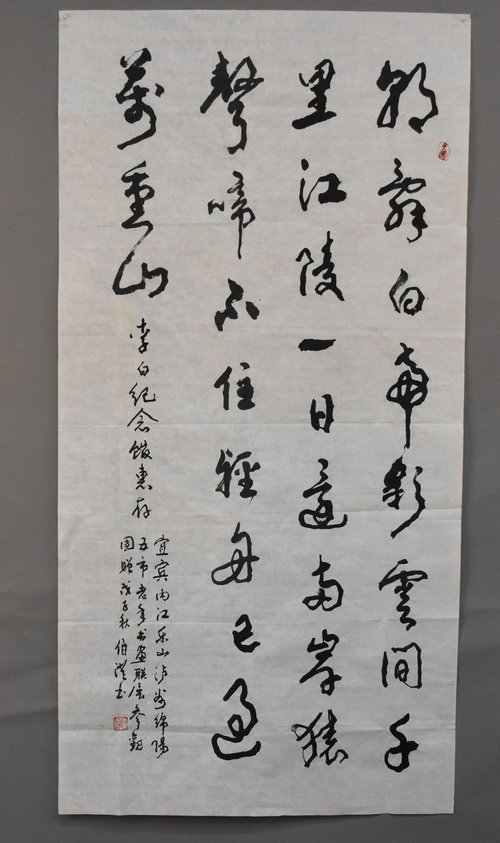 朝辭白帝彩雲間千
里江陵一日還兩岸猿
聲啼不住輕舟已過
萬重山
李白纪念馆惠存
宜宾内江乐山泸州绵阳
五市老年书画联展参观
团赠戊子秋伯书